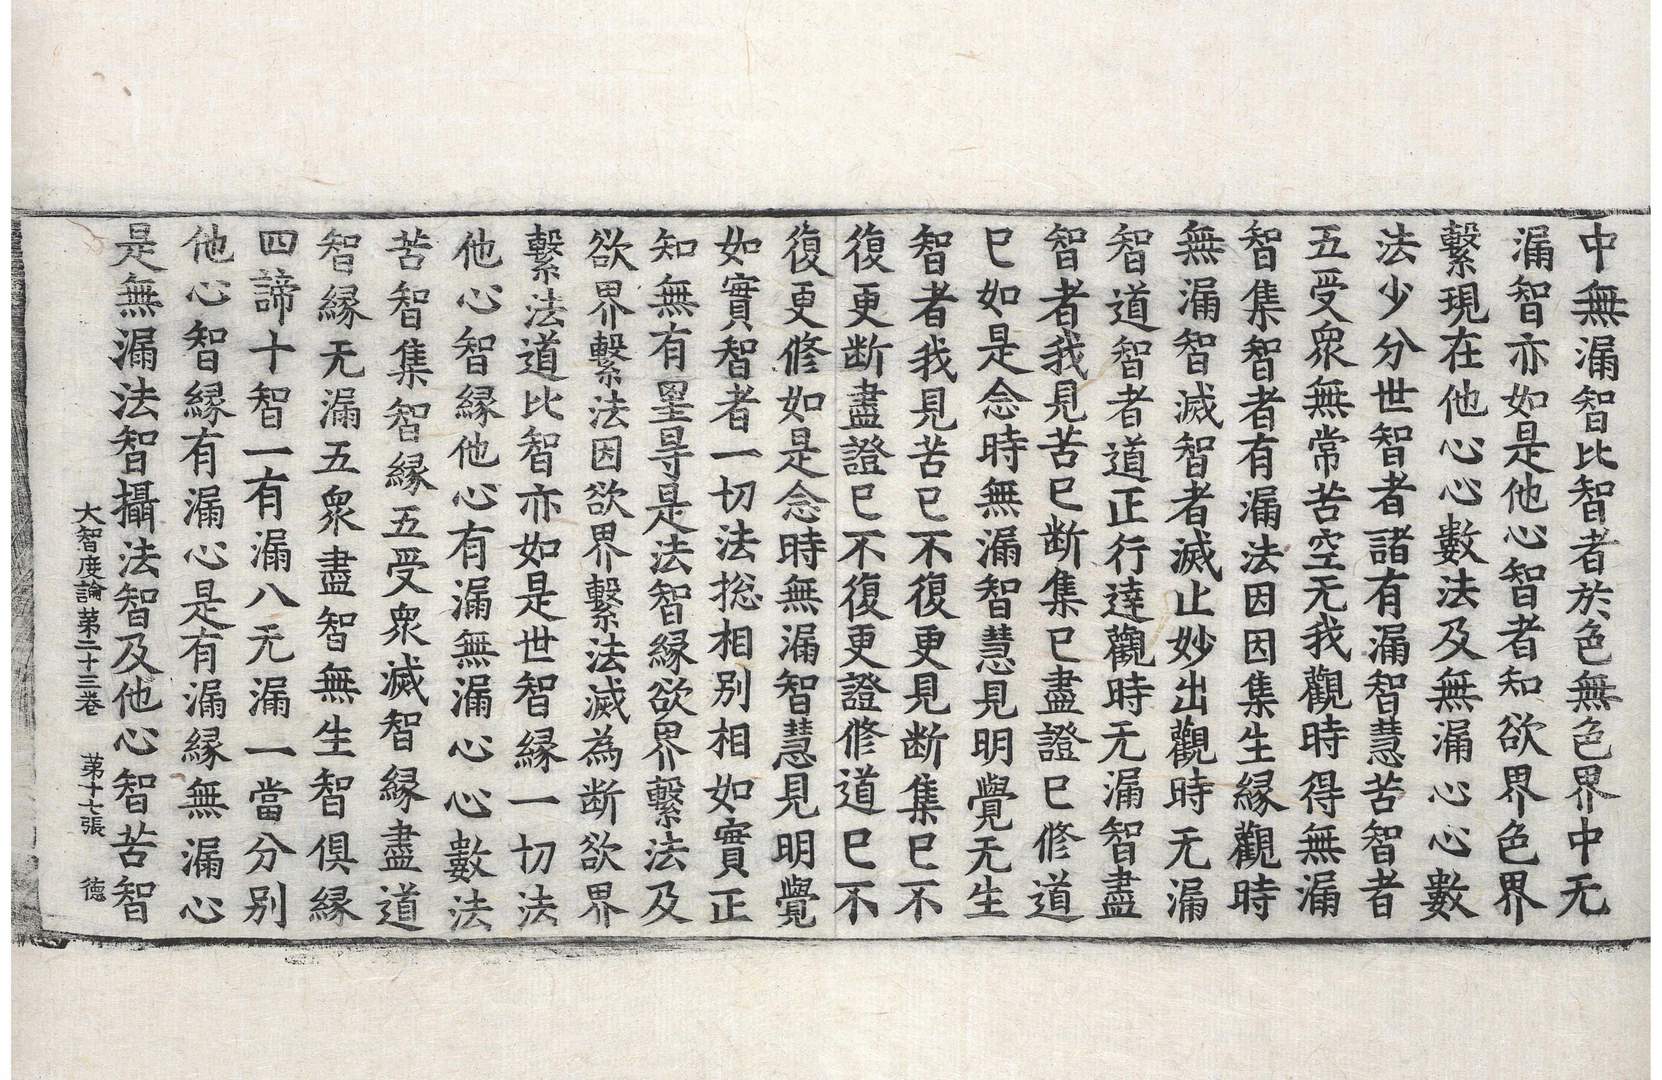 中無漏智比智者於色無色界中无
漏智亦如是他心智者知欲界色界
繫現在他心心數法及無漏心心數
法少分世智者諸有漏智慧苦智者
五受衆無常苦空无我觀時得無漏
智集智者有漏法因因集生緣觀時
無漏智滅智者滅止妙出觀時无漏
智道智者道正行達觀時无漏智盡
智者我見苦已断集已盡證已修道
已如是念時無漏智慧見明覺无生
智者我見苦已不復更見断集已不
復更断盡證已不復更證修道已不
復更修如是念時無漏智慧見明覺
如實智者一切法揔相別相如實正
知無有罣㝵是法智緣欲界繫法及
欲界繫法因欲界繫法滅為断欲界
繫法道比智亦如是世智緣一切法
他心智緣他心有漏無漏心心數法
苦智集智緣五受衆滅智緣盡道
智緣无漏五衆盡智無生智俱緣
四諦十智一有漏八无漏一當分別
他心智緣有漏心是有漏緣無漏心
是無漏法智攝法智及他心智苦智
大智度論第二十三卷 第十七張 德